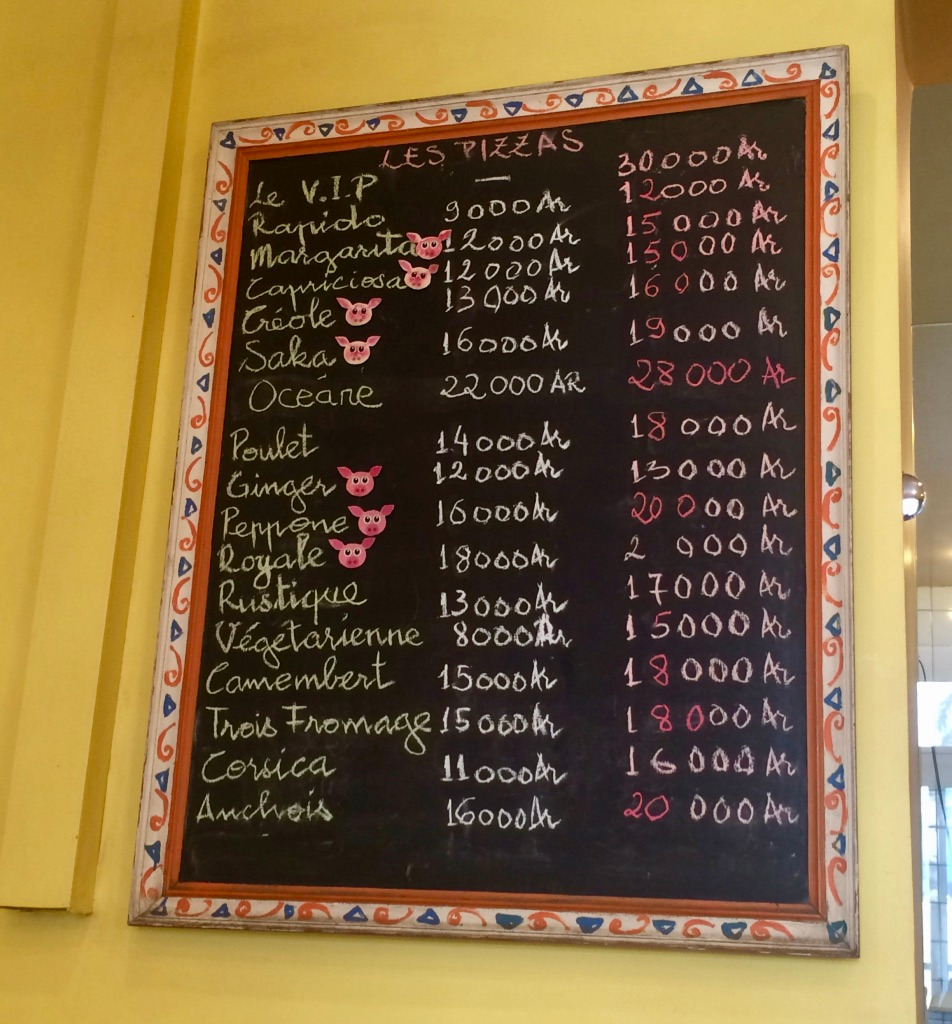 LES PIZZAS
Le V.I.P — 30000 Ar
Rapido 9000 Ar 12000 Ar
Margarita 12000 Ar 15000 Ar
Capriciosa 12000 Ar 15000 Ar
Créole 13000 Ar 16000 Ar
Saka 16000 Ar 19000 Ar
Océane 22000 AR 28000 Ar
Poulet 14000 Ar 18000 Ar
Ginger 12000 Ar 15000 Ar
Peppone 16000 Ar 20000 Ar
Royale 18000 Ar 2 000 Ar
Rustique 13000 Ar 17000 Ar
Végétarienne 8000 Ar 15000 Ar
Camembert 15000 Ar 18000 Ar
Trois Fromage 15000 Ar 18000 Ar
Corsica 11000 Ar 16000 Ar
Anchois 16000 Ar 20 000 Ar